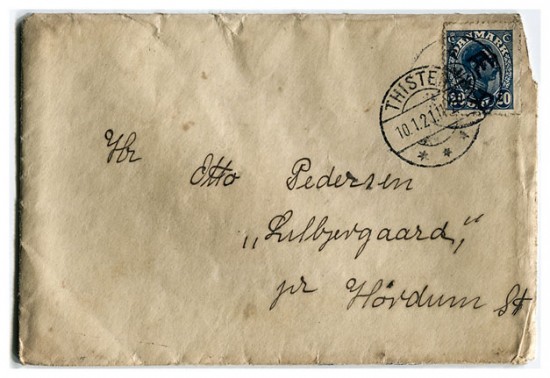 DANMARK
20 20
THISTED
10.1.21.
Hr Otto Pedersen
„Lulbjergaard,"
pr Hørdum St